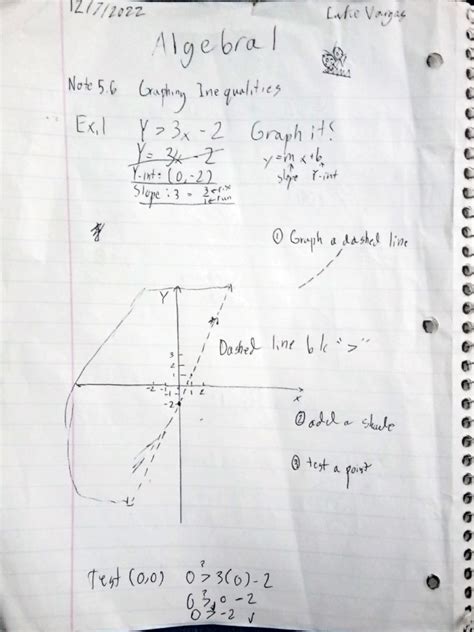 12/7/2022
Luke Vargas
Algebra 1
Note 5.6 Graphing Inequalities
Ex,1 Y > 3x - 2 Graph it!
Y = 3x - 2 y = mx + b
Y-int: (0, -2) slope Y-int
Slope: 3 = 3 rise
1 run
① Graph a dashed line
Y
Dashed line b/c ">"
3
2
1
-2 -1 1 2
x
-1
-2
② add a shade
③ test a point
Test (0,0) 0 > 3(0) - 2
?
0 > 0 - 2
?
0 > -2 ✓